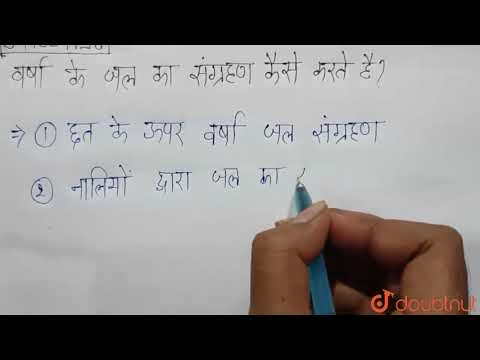 वर्षा के जल का संग्रहण कैसे करते है?
⇒ ① छत के ऊपर वर्षा जल संग्रहण
② नालियों द्वारा जल का
doubtnut